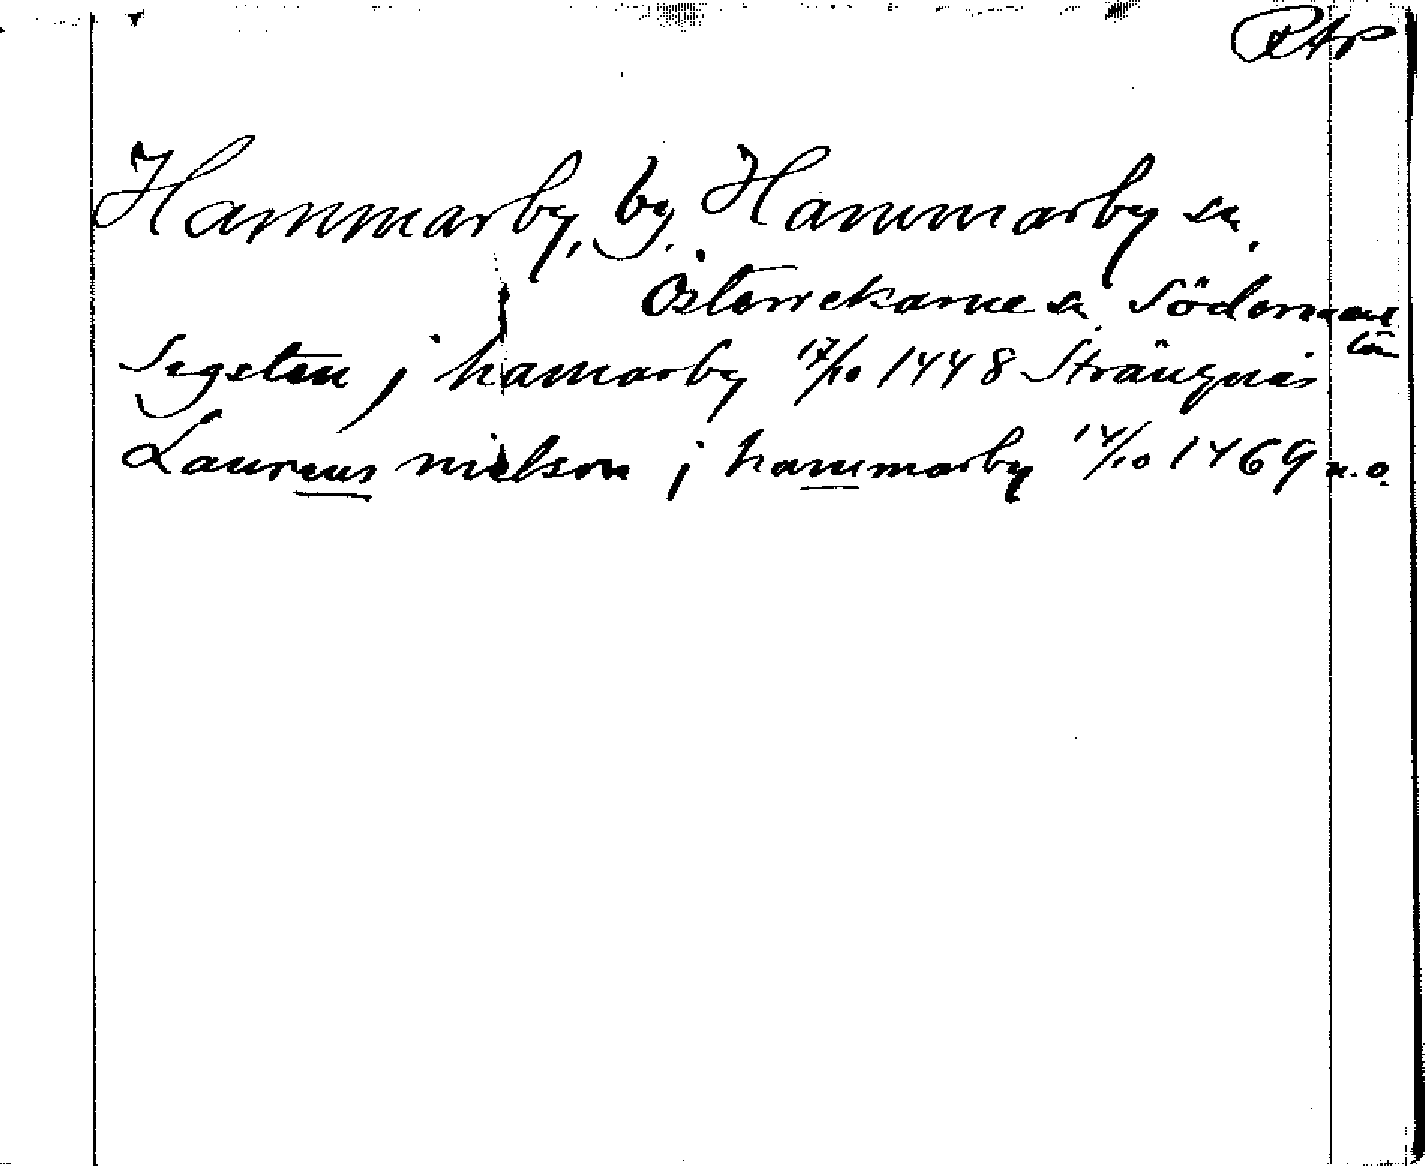 RAP
Hammarby, by, Hammarby sn,
Österrekarne hd, Södermanl
län
Sigsten j hamarby 17/10 1448 Strängnäs
Laurens nielson j hammarby 14/10 1469 u.o.